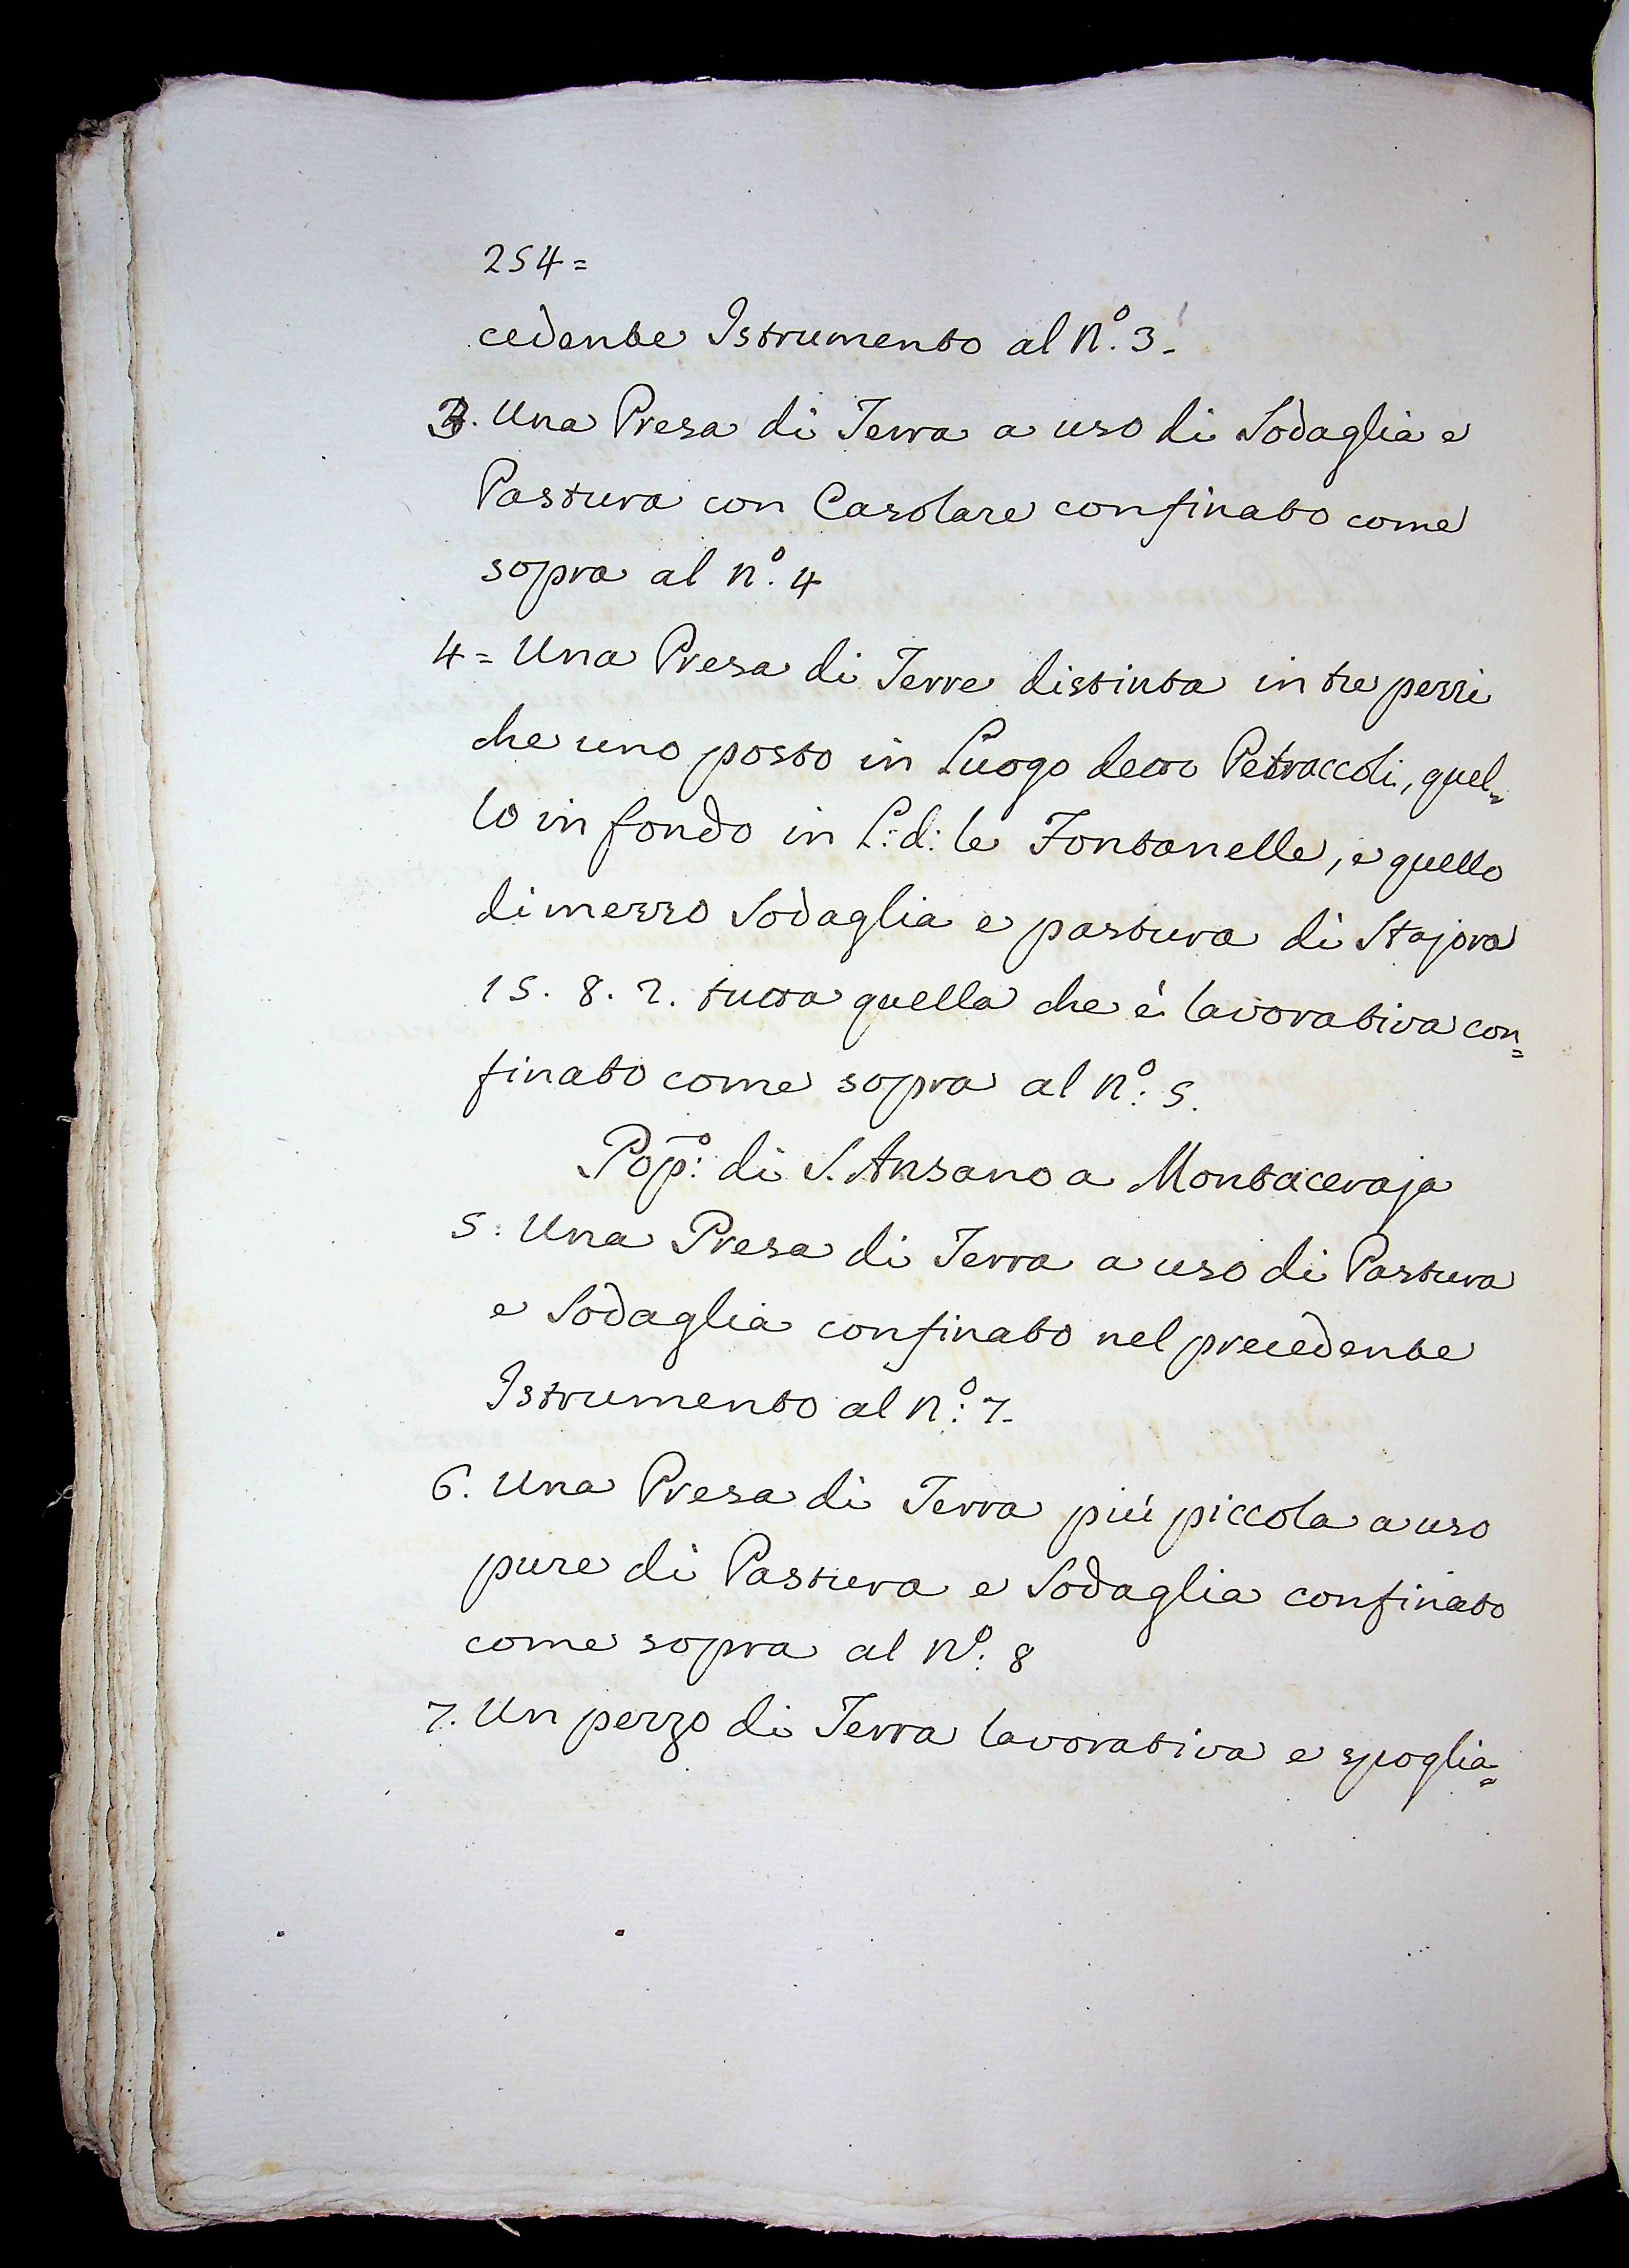 254=
cedente Istrumento al N.º 3.
3. Una Presa di Terra a uso di Sodaglia e
Pastura con Casolare confinato come
sopra al N.º 4
4= Una Presa di Terre distinta in tre pezzi
che uno posto in Luogo detto Petraccoli, quel=
lo in fondo in L: d: le Fontanelle, e quello
di mezzo Sodaglia e pastura di Stajora
15. 8. 2. tutta quella che è lavorativa con=
finato come sopra al N.º: 5.
Pop:º di S. Ansano a Montaceraja
5: Una Presa di Terra a uso di Pastura
e Sodaglia confinato nel precedente
Istrumento al N.º: 7.
6. Una Presa di Terra più piccola a uso
pure di Pastura e Sodaglia confinato
come sopra al N.º: 8
7. Un pezzo di Terra lavorativa e spoglia=